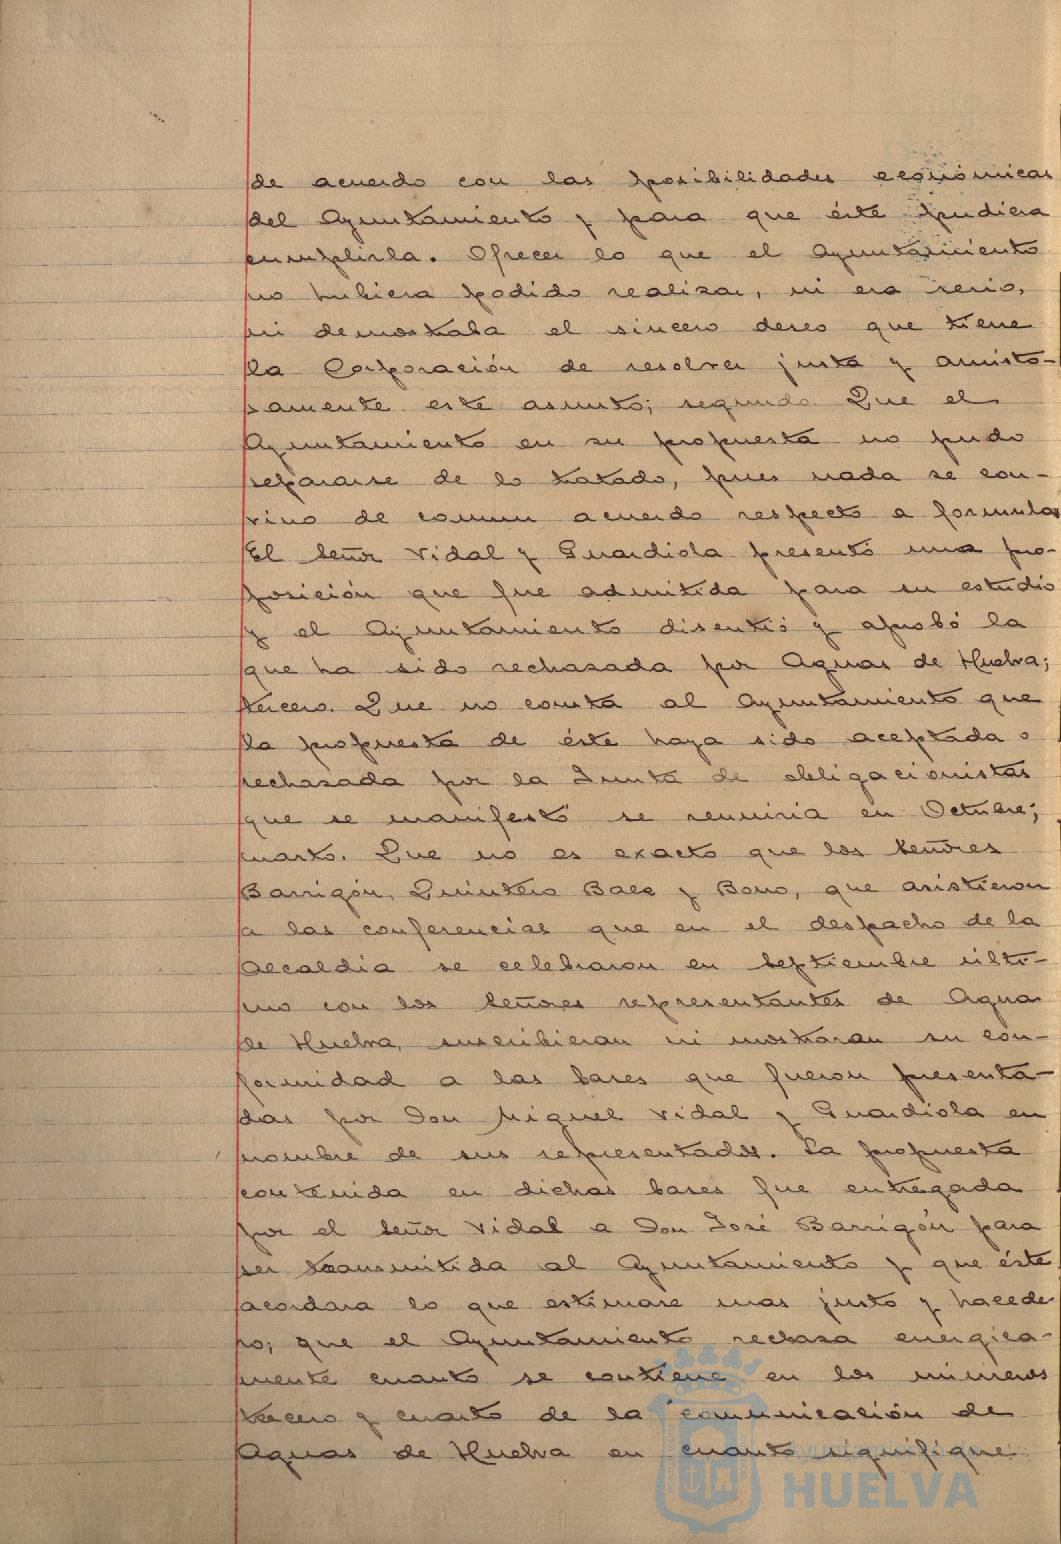 de acuerdo con las posibilidades económicas
del Ayuntamiento y para que éste pudiera
cumplirla. Ofrecer lo que el Ayuntamiento
no hubiera podido realizar, ni era serio,
ni demostraba el sincero deseo que tiene
la Corporación de resolver justa y amisto-
samente este asunto; segundo. Que el
Ayuntamiento en su propuesta no pudo
separarse de lo tratado, pues nada se con-
vino de comun acuerdo respecto a formulas
El Señor Vidal y Guardiola presentó una pro-
posición que fue admitida para su estudio
y el Ayuntamiento discutió y aprobó la
que ha sido rechasada por Aguas de Huelva;
tercero. Que no consta al Ayuntamiento que
la propuesta de éste haya sido aceptada o
rechasada por la Junta de obligacionistas
que se manifestó se reuniria en Octubre;
cuarto. Que no es exacto que los Señores
Barrigón, Quintero Baez y Bono, que asistieron
a las conferencias que en el despacho de la
Alcaldia se celebraron en Septiembre últi-
mo con los Señores representantes de Aguas
de Huelva, suscribieran ni mostraran su con-
formidad a las bases que fueron presenta-
das por Don Miguel Vidal y Guardiola en
nombre de sus representados. La propuesta
contenida en dichas bases fue entregada
por el Señor Vidal a Don José Barrigón para
ser transmitida al Ayuntamiento y que éste
acordara lo que estimase mas justo y hacede-
ro; que el Ayuntamiento rechasa energica-
mente cuanto se contiene en los números
tercero y cuarto de la comunicación de
Aguas de Huelva en cuanto signifique
Ayuntamiento
HUELVA